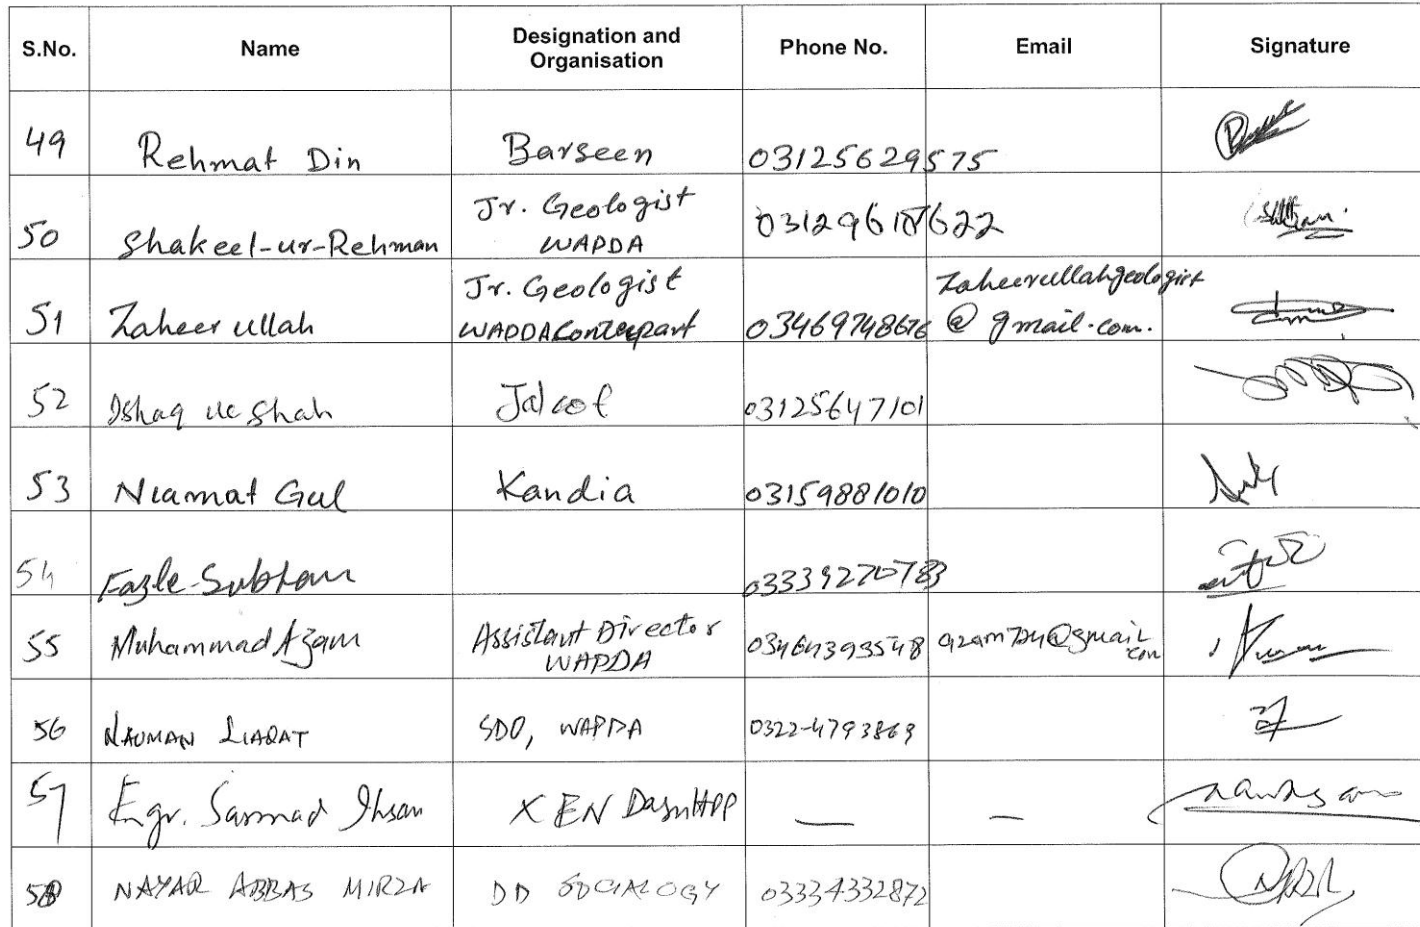 S.No. Name Designation and Organisation Phone No. Email Signature
49 Rehmat Din Barseen 03125629575
50 Shakeel-ur-Rehman Jr. Geologist WAPDA
51 Zaheer ullah Jr. Geologist WAPDA Conterpart 03469748676 Zaheerullahgeologist @ gmail.com.
52 Ishaq Shah 03125647101
53 Niamat Gul Kandia 03159881010
54 Fazle Subhan 03339270783
55 Muhammad Azam Assistant Director WAPDA 03464393548
56 NAUMAN LIAQAT SDO, WAPDA 0322-4793869
57 Engr. Sarmad Ihsan XEN Dasu HPP — —
58 NAYAR ABBAS MIRZA DD SOCIALOGY 03334332872